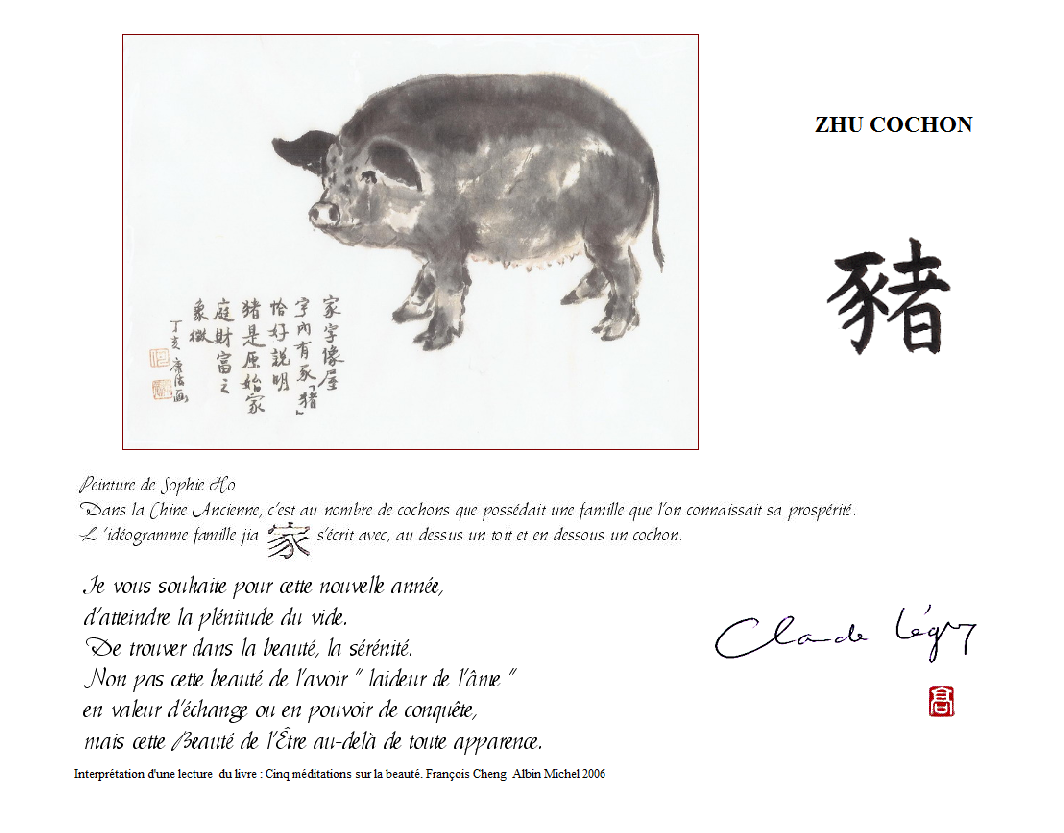 家字像屋
宇內有豕「猪」
恰好説明
猪是原始家
庭財富之
象徵
丁亥
ZHU COCHON
豬
Peinture de Sophie Ho
Dans la Chine Ancienne, c'est au nombre de cochons que possédait une famille que l'on connaissait sa prospérité.
L'idéogramme famille jia 家 s'écrit avec, au dessus un toit et en dessous un cochon.
Je vous souhaite pour cette nouvelle année,
d'atteindre la plénitude du vide.
De trouver dans la beauté, la sérénité.
Non pas cette beauté de l'avoir " laideur de l'âme "
en valeur d'échange ou en pouvoir de conquête,
mais cette Beauté de l'Être au-delà de toute apparence.
Claude
髙
Interprétation d'une lecture du livre : Cinq méditations sur la beauté. François Cheng Albin Michel 2006